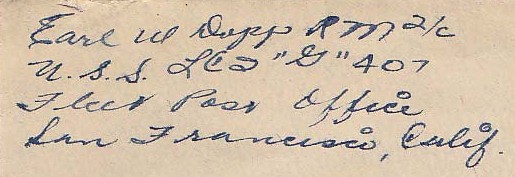 Earl W Dopp RM 2/c
U.S.S. LCI "G" 407
Fleet Post Office
San Francisco, Calif.